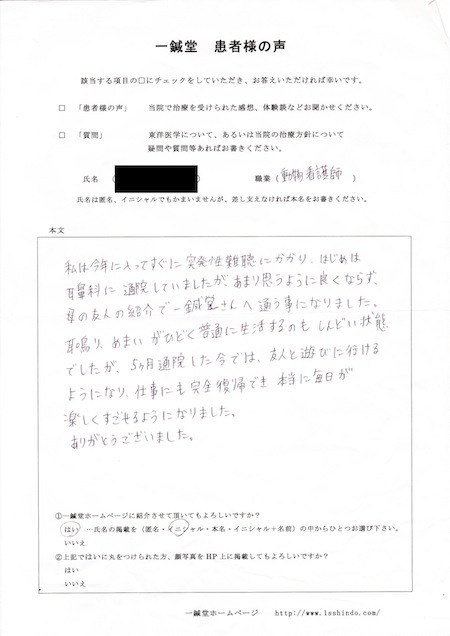 一鍼堂 患者様の声
該当する項目の□にチェックをしていただき、お答えいただければ幸いです。
□ 「患者様の声」 当院で治療を受けられた感想、体験談などお聞かせください。
□ 「質問」 東洋医学について、あるいは当院の治療方針について
疑問や質問等あればお書きください。
氏名 ( ) 職業 ( 動物看護師 )
氏名は匿名、イニシャルでもかまいませんが、差し支えなければ本名をお書きください。
本文
私は今年に入ってすぐに突発性難聴にかかり、はじめは
耳鼻科に通院していましたが、あまり思うように良くならず、
母の友人の紹介で一鍼堂さんへ通う事になりました。
耳鳴り、めまいがひどく普通に生活するのもしんどい状態
でしたが、5ヶ月通院した今では、友人と遊びに行ける
ようになり、仕事にも完全復帰でき本当に毎日が
楽しくすごせるようになりました。
ありがとうございました。
①一鍼堂ホームページに紹介させて頂いてもよろしいですか？
はい …氏名の掲載を（匿名・イニシャル・本名・イニシャル＋名前）の中からひとつお選び下さい。
いいえ
②上記ではいに丸をつけられた方、顔写真を HP 上に掲載してもよろしいですか？
はい
いいえ
一鍼堂ホームページ http://www.1sshindo.com/